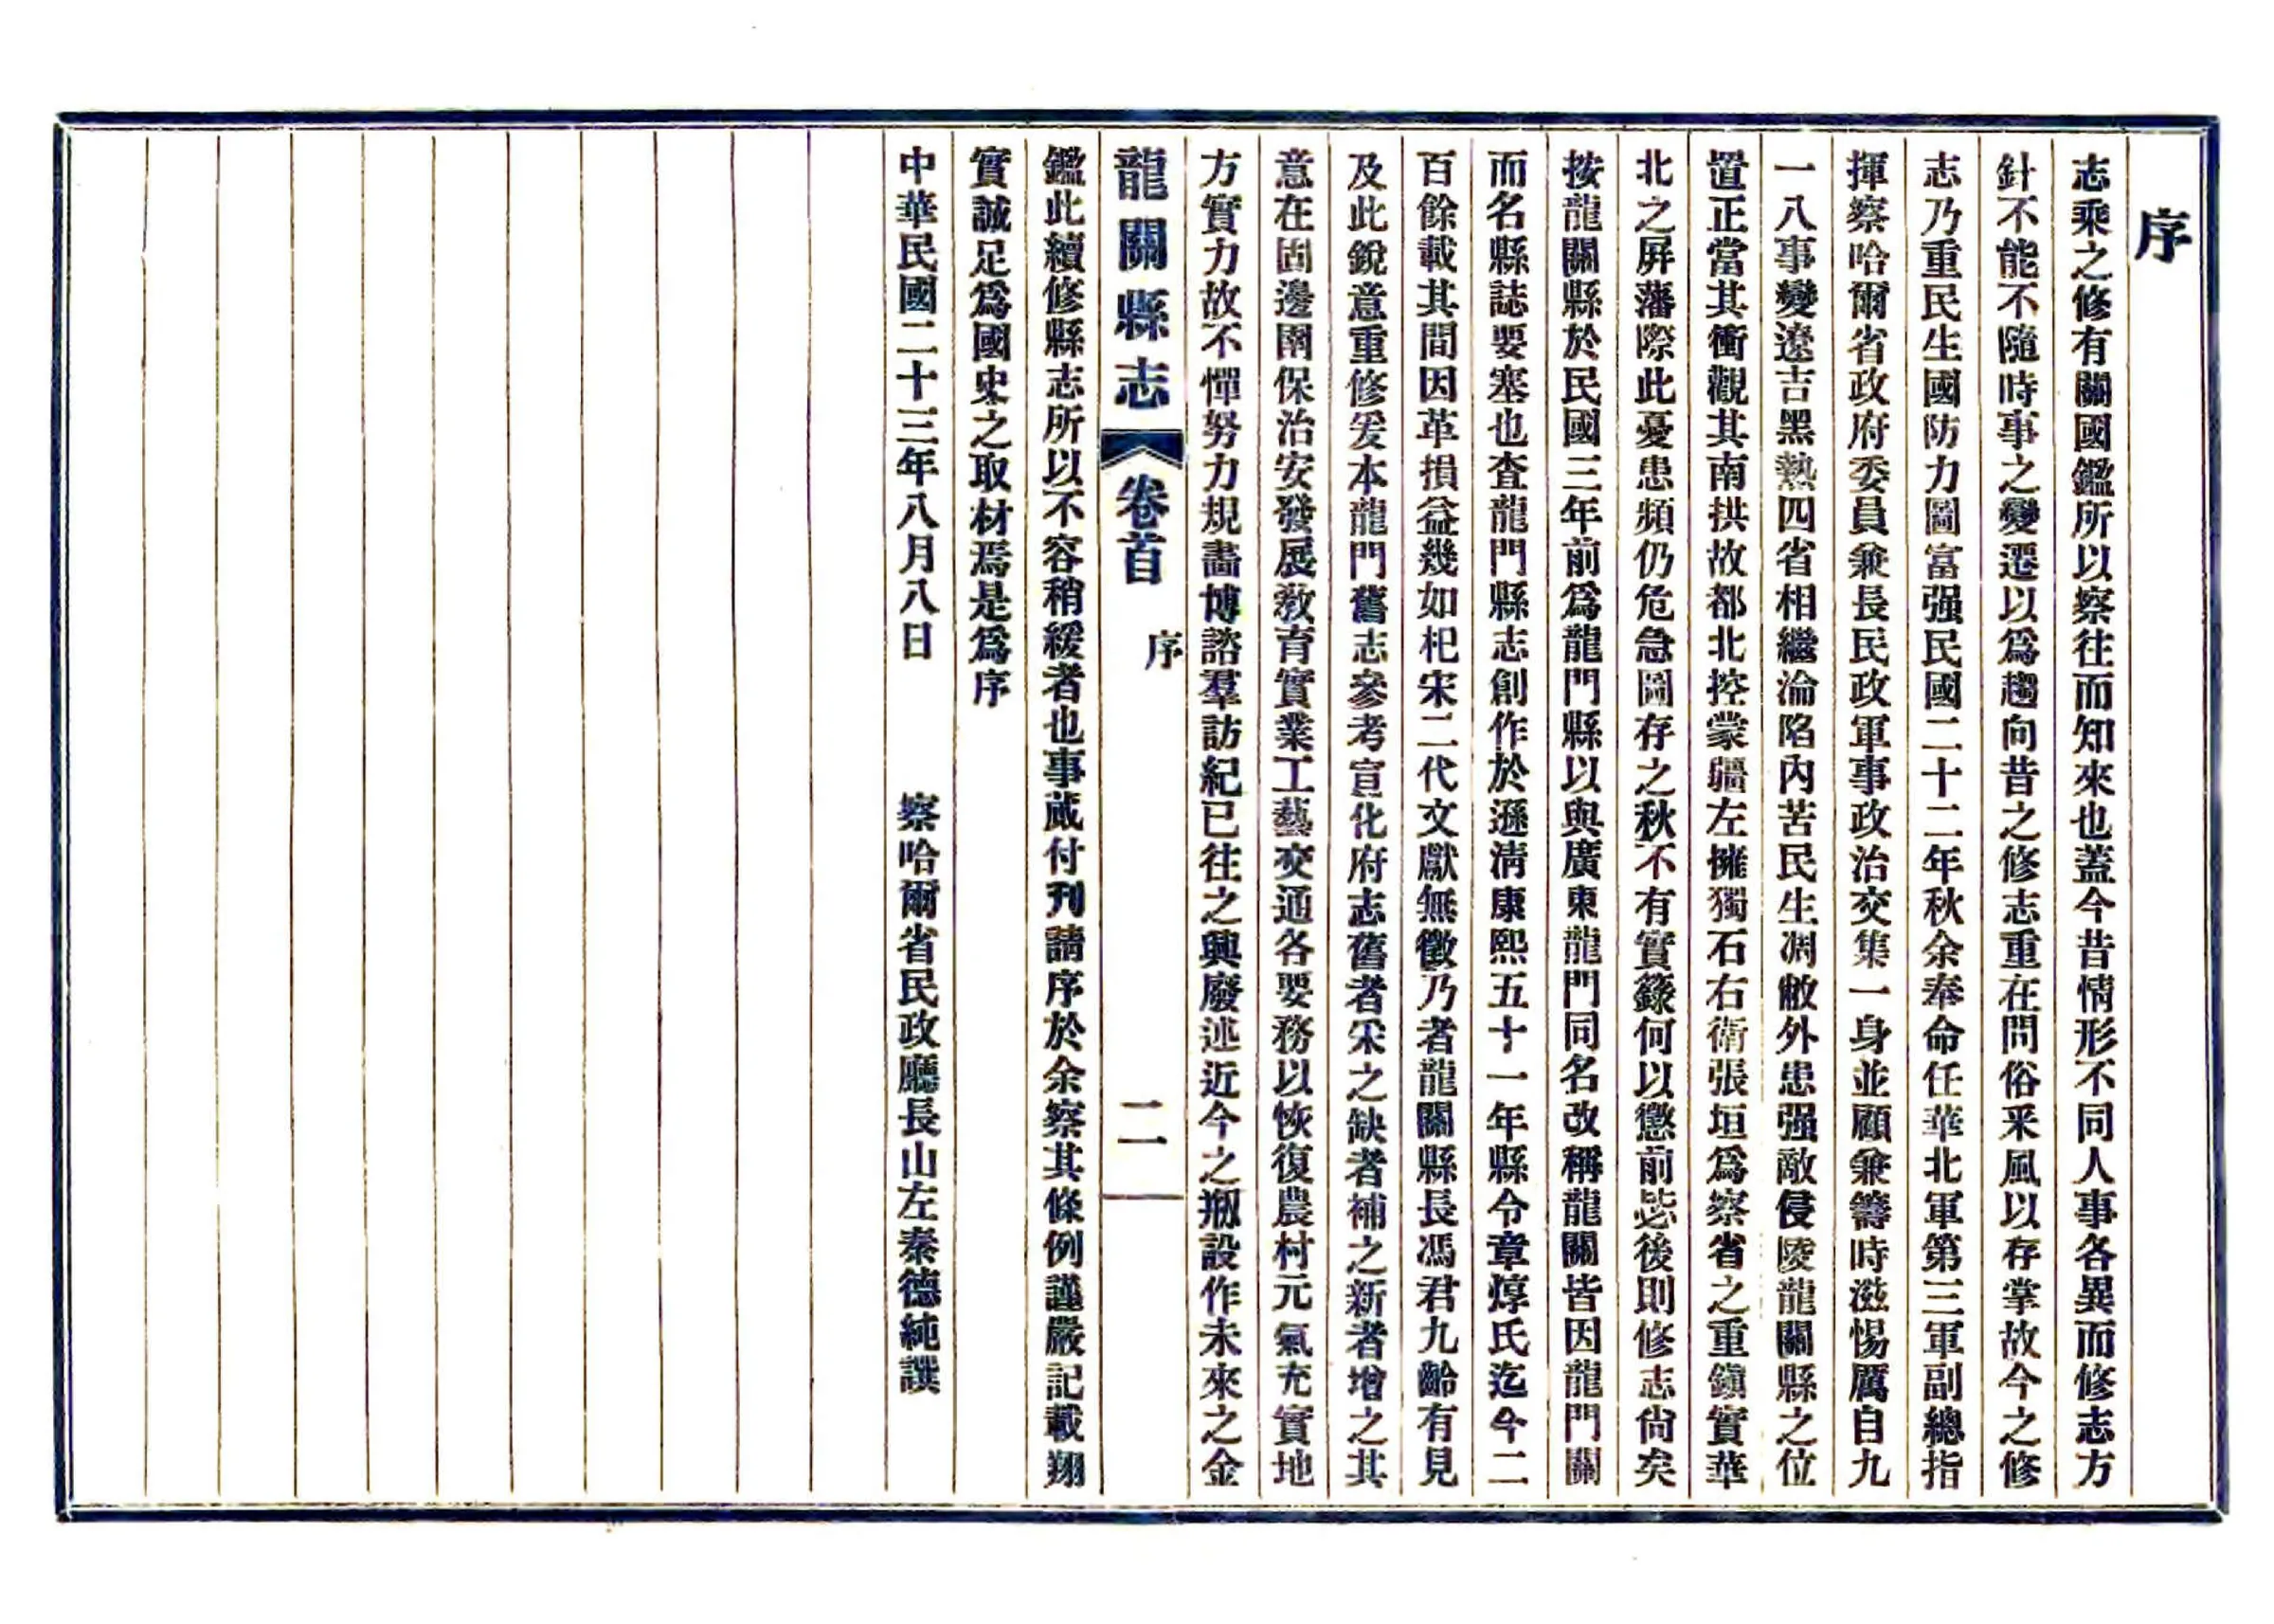 序
志乘之修有關國鑑所以察往而知來也蓋今昔情形不同人事各異而修志方
針不能不隨時事之變遷以爲趨向昔之修志重在問俗釆風以存掌故今之修
志乃重民生國防力圖富强民國二十二年秋余奉命任華北軍第三軍副總指
揮察哈爾省政府委員兼長民政軍事政治交集一身並顧兼籌時滋惕厲自九
一八事變遼吉黑熱四省相繼淪陷內苦民生凋敝外患强敵侵陵龍關縣之位
置正當其衝觀其南拱故都北控蒙疆左擁獨石右衛張垣爲察省之重鎭實華
北之屏藩際此憂患頻仍危急圖存之秋不有實錄何以懲前毖後則修志尙矣
按龍關縣於民國三年前爲龍門縣以與廣東龍門同名改稱龍關皆因龍門關
而名縣誌要塞也查龍門縣志創作於遜淸康熙五十一年縣令章焞氏迄今二
百餘載其間因革損益幾如杞宋二代文獻無徵乃者龍關縣長馮君九齡有見
及此銳意重修爰本龍門舊志參考宣化府志舊者宋之缺者補之新者增之其
意在固邊圉保治安發展敎育實業工藝交通各要務以恢復農村元氣充實地
方實力故不憚努力規畫博諮羣訪紀已往之興廢述近今之剏設作未來之金
龍關縣志 卷首 序 二
鑑此續修縣志所以不容稍緩者也事蕆付刊請序於余察其條例謹嚴記載翔
實誠足爲國史之取材焉是爲序
中華民國二十三年八月八日 察哈爾省民政廳長山左秦德純譔